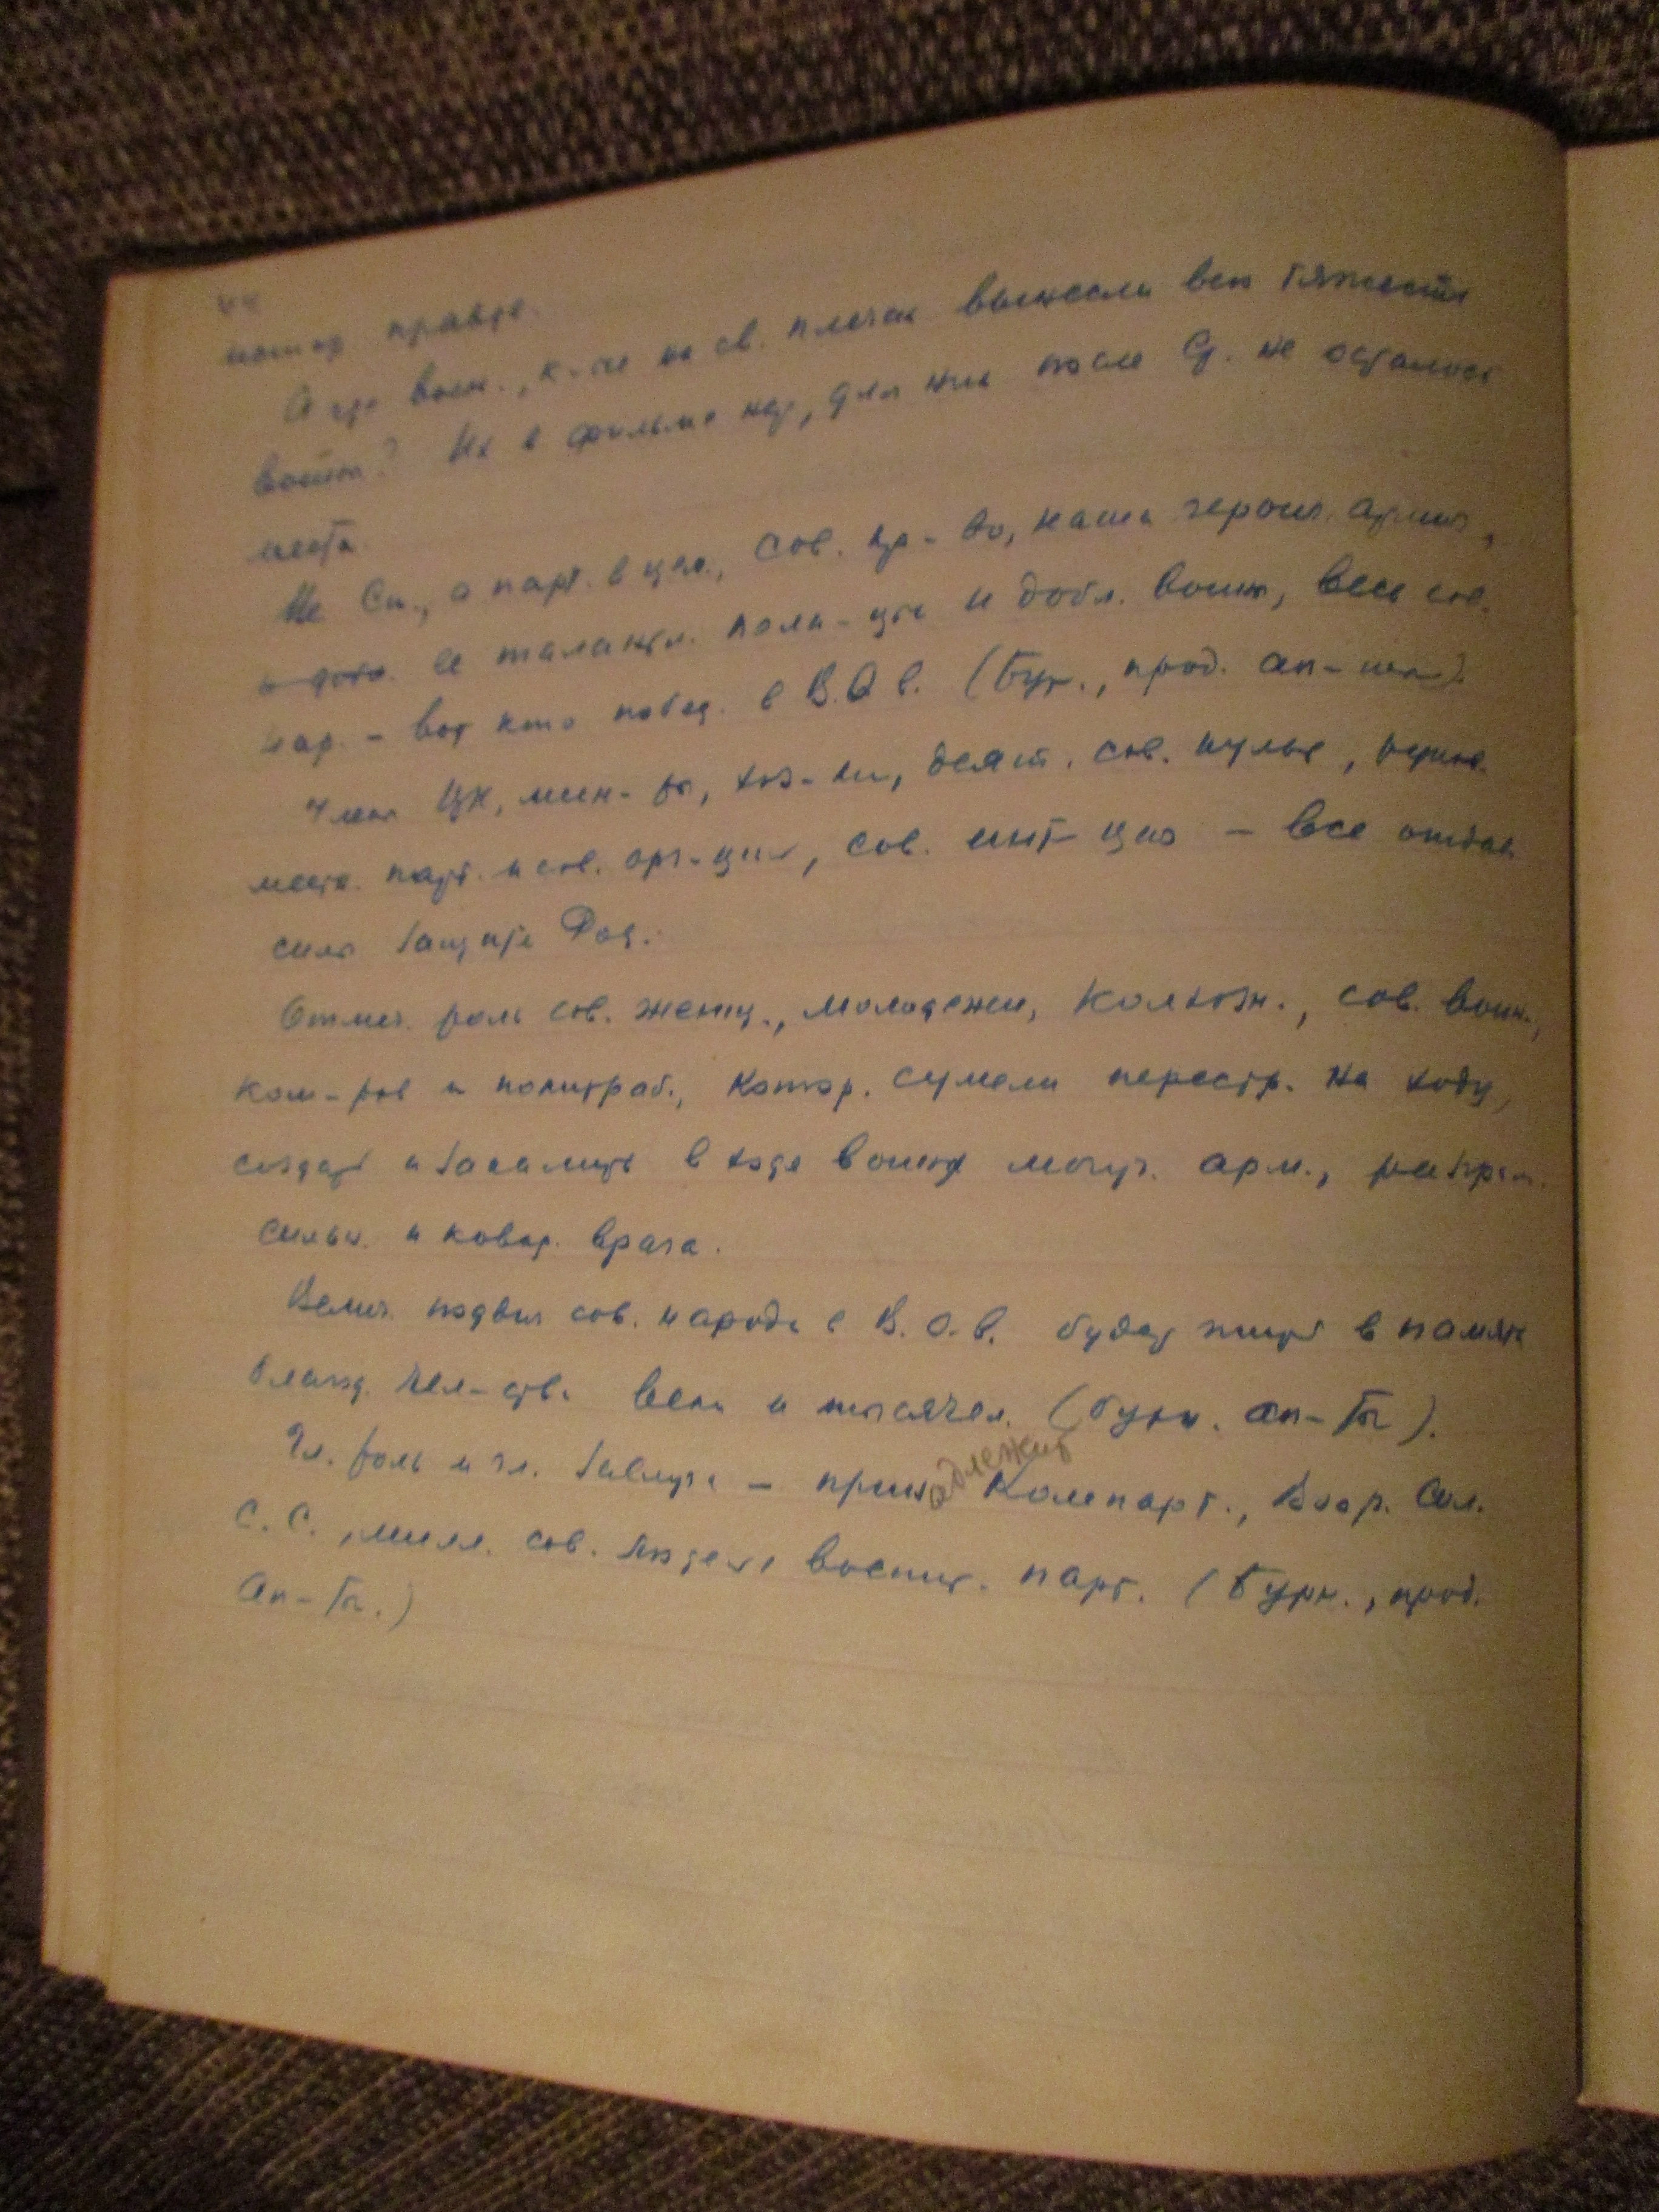 44
правде.
А где воен., к-рые на св. плечах вынесли всю тяжесть
войны? Их в фильме нет, для них после С. не осталось
места.
Не Ст., а парт. в цел., сов. пр-во, наша героич. армия,
ее талантл. полк-цы и добл. воины, весь сов.
нар. - вот кто побед. в В.О.в. (Бур., прод. ап-ты).
Члены ЦК, мин-ры, хоз-ки, деят. сов. культ,
местн. парт. и сов. орг-ции, сов. инт-ция - все отдав.
силы защите Род.
Отмеч. роль сов. женщ., молодежи, колхозн., сов. воин.,
ком-ров и политраб., котор. сумели перестр. на ходу,
создать и закалить в ходе войны могуч. арм., разгром.
сильн. и ковар. врага.
Велич. подвиг сов. народа в В.О.в. будет жить в памяти
благод. чел-ства века и тысячел. (бурн. ап-ты).
Гл. роль и гл. заслуга - принадлежит Компарт., Воор. Сил.
С.С., милл. сов. людей, воспит. парт. (Бурн., прод.
ап-ты.)